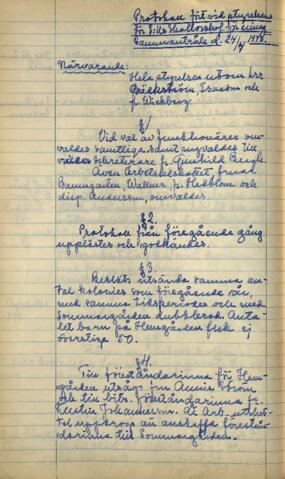 Protokoll fört vid styrelsens
för Sikls Skollovskol. förening
sammanträde d. 24/4 1938.
Närvarande:
Hela styrelsen utom hrr
Bäckström, Isacson och
fr. Wickberg.
§1
Vid val av funktionärer om-
valdes samtliga, samt nyvaldes till
sekreterare fr. Gunhild Bergh.
Även Arbetsutskottet, fruar
Baumgarten, Wallner, fr. Hedblom och
disp. Andersson, omvaldes.
§2.
Protokoll från föregående gång
upplästes och godkändes.
§3.
Beslöts utsända samma an-
tal kolonier som föregående år,
med samma tidsperioder och med
Sommargården dubblerad. Anta-
let barn på Hemgården fick ej
överstiga 50.
§4.
Till föreståndarinna för Hem-
gården utsågs frn Annie Ström
och till bitr. föreståndarinna fr.
Kerstin Johansson. Åt Arb. utskot-
tet uppdrogs att anskaffa förestån-
darinna till Sommargården.